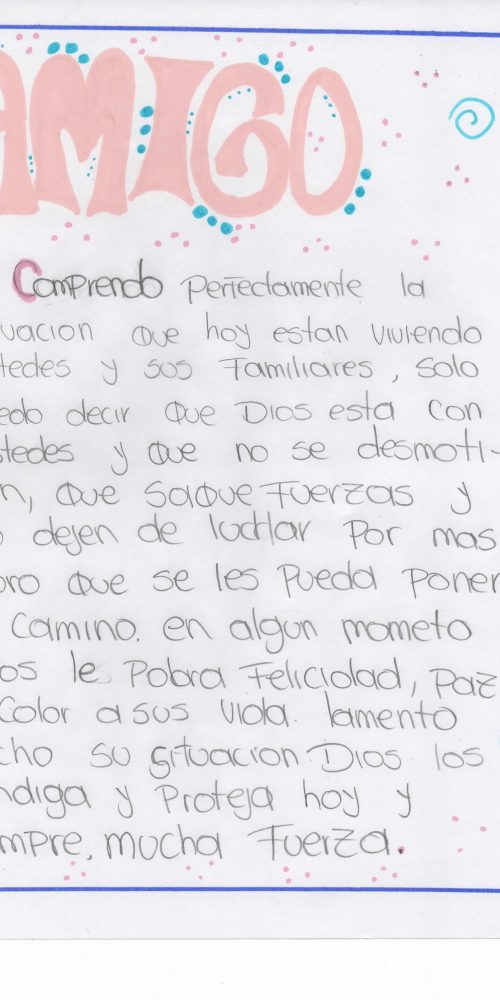 AMIGO
Comprendo perfectamente la
uacion que hoy estan viviendo
tedes y sus Familiares, solo
edo decir que Dios esta con
stedes y que no se desmoti-
n, que saque Fuerzas y
o dejen de luchar por mas
oro que se les pueda poner
camino. en algun mometo
os le pobra Felicidad, paz
color a sus vida. lamento
cho su situacion Dios los
ndiga y proteja hoy y
mpre, mucha Fuerza.